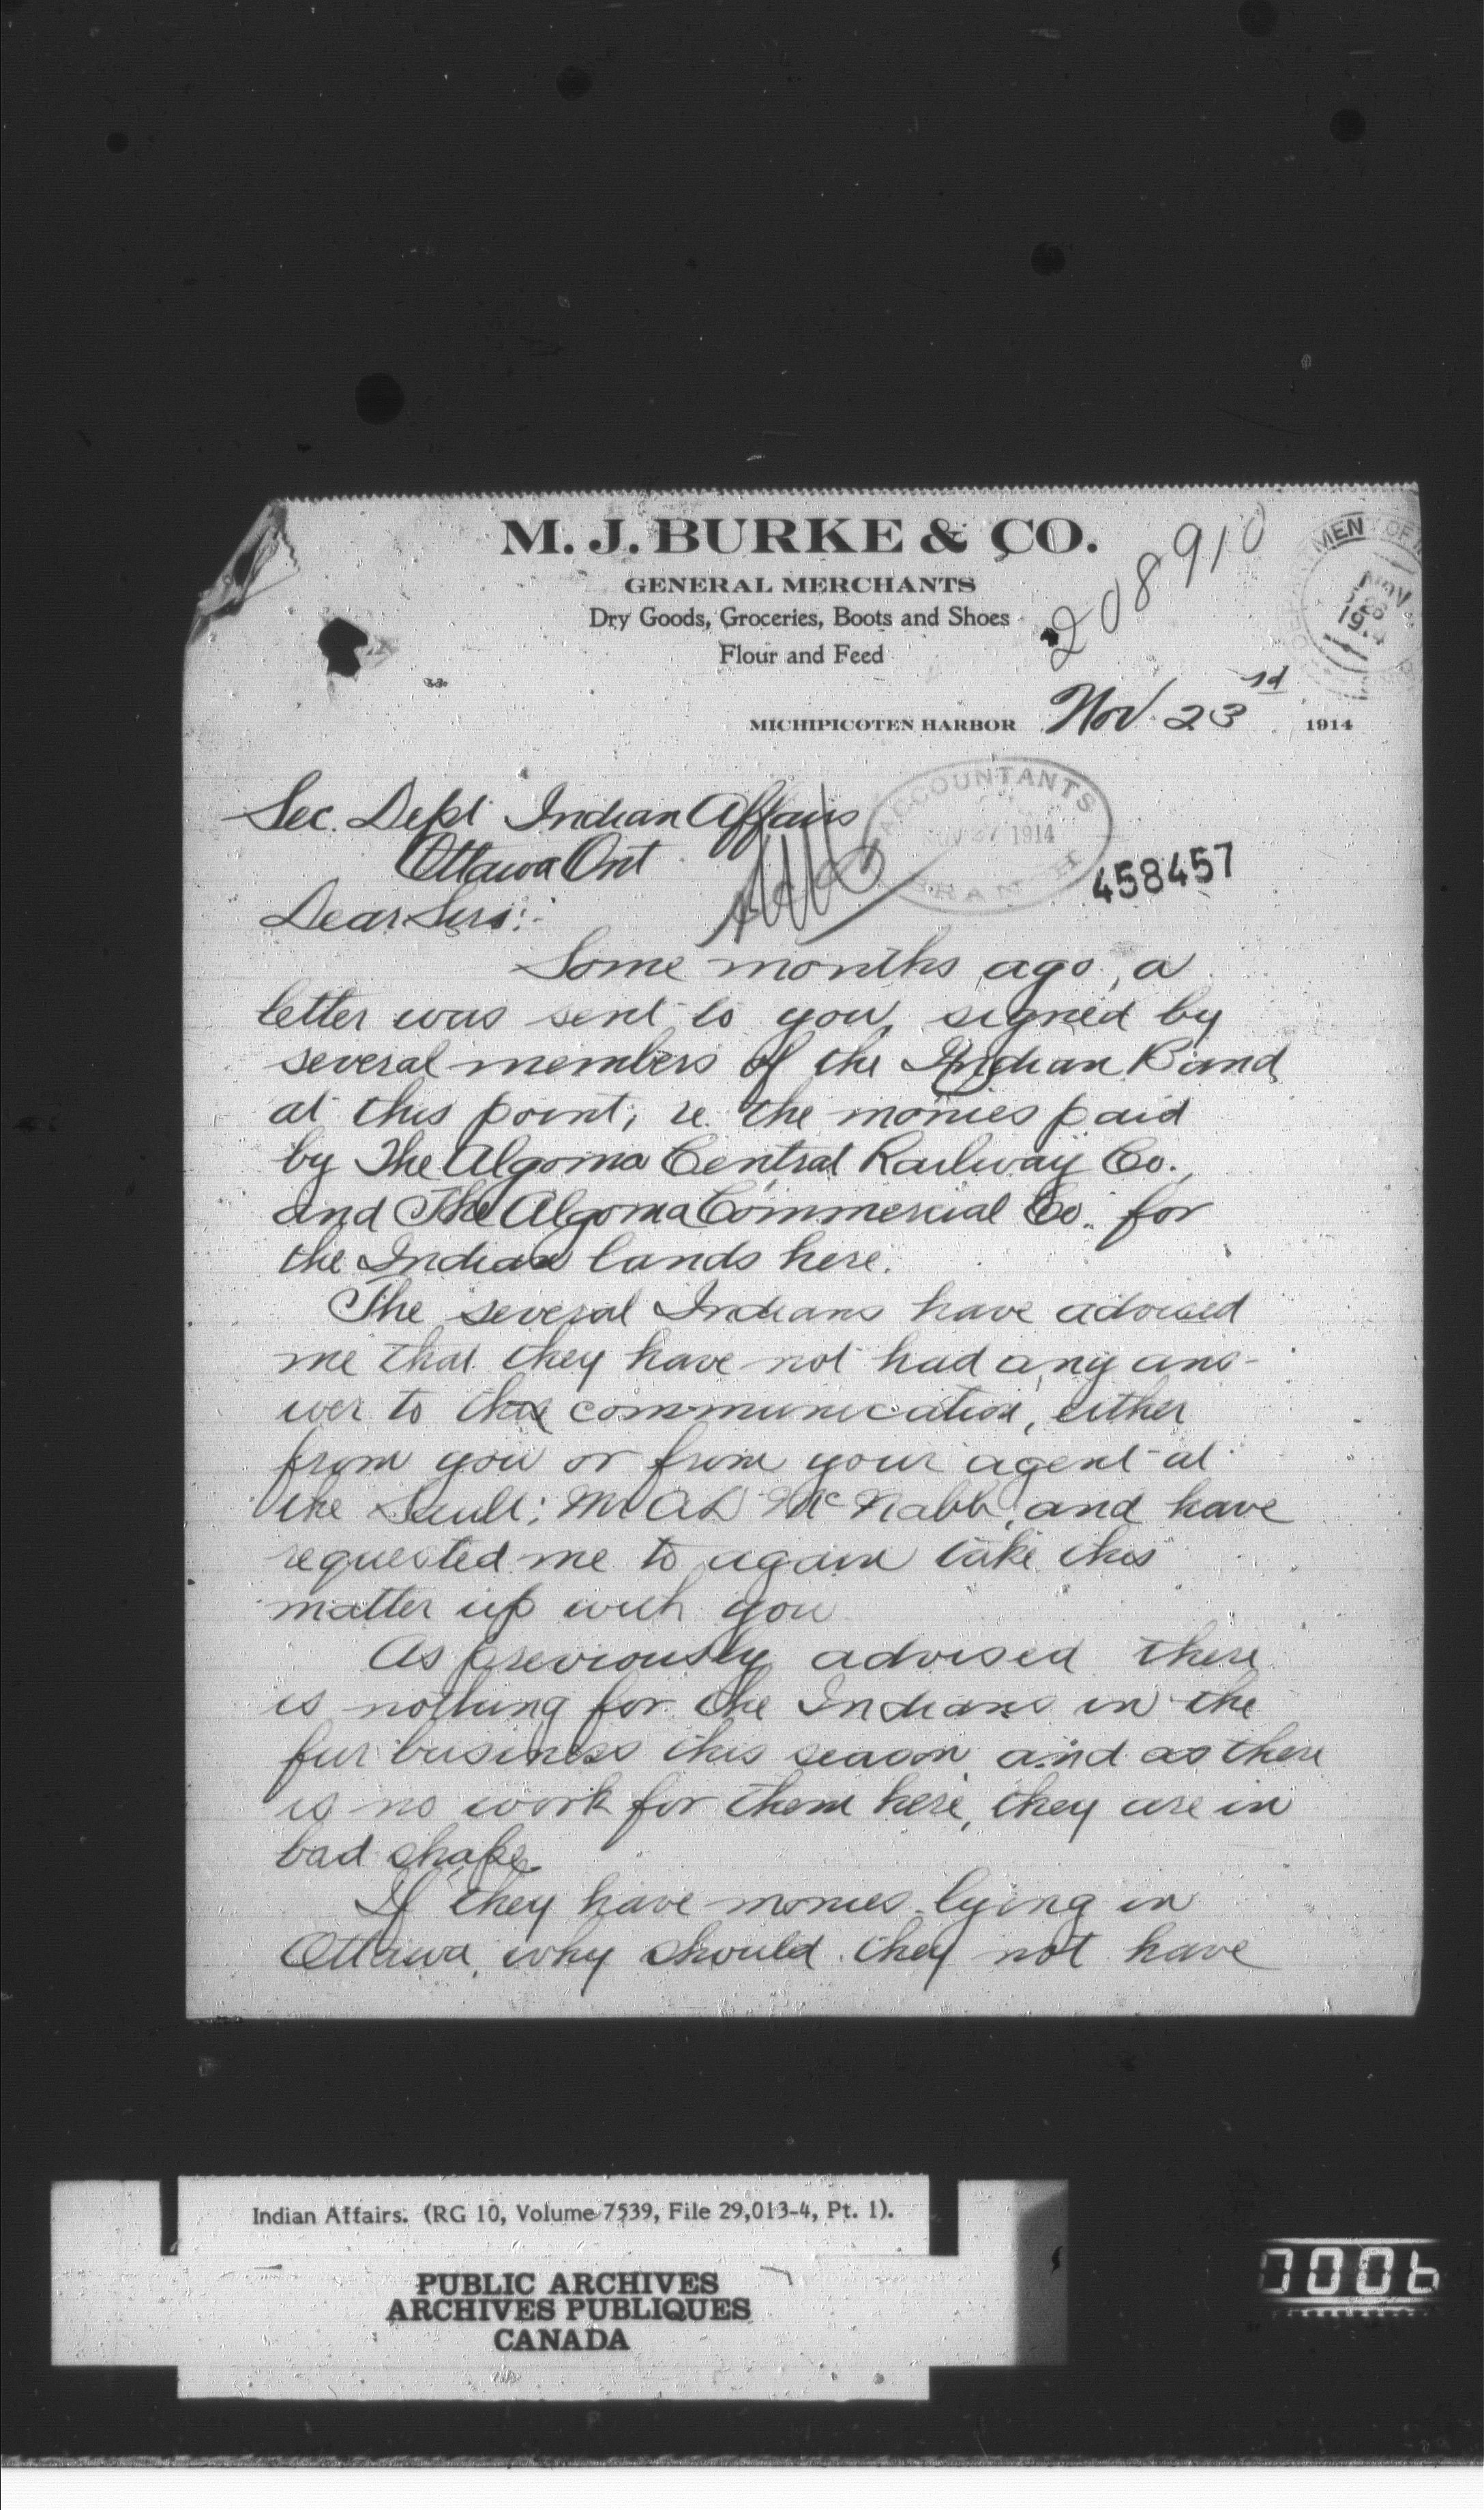 M. J. BURKE & CO.
GENERAL MERCHANTS
Dry Goods, Groceries, Boots and Shoes
Flour and Feed
208910
MENT OF
NOV 26 1914
MICHIPICOTEN HARBOR Nov. 23rd 1914
Sec. Dept Indian Affairs
Ottawa Ont
ACCOUNTANTS
NOV 27 1914
BRANCH
458457
Dear Sirs:-
Some months ago, a
letter was sent to you, signed by
several members of the Indian Band
at this point, re. the monies paid
by The Algoma Central Railway Co.,
and The Algoma Commercial Co. for
the Indian lands here.
The several Indians have advised
me that they have not had any ans-
wer to this communication, either
from you or from your agent at
the Sault; Mr AD McNabb, and have
requested me to again take this
matter up with you
As previously advised there
is nothing for the Indians in the
fur business this season and as there
is no work for them here, they are in
bad shape.
If they have monies lying in
Ottawa, why should they not have
Indian Affairs. (RG 10, Volume 7539, File 29,013-4, Pt. 1).
PUBLIC ARCHIVES
ARCHIVES PUBLIQUES
CANADA
0006